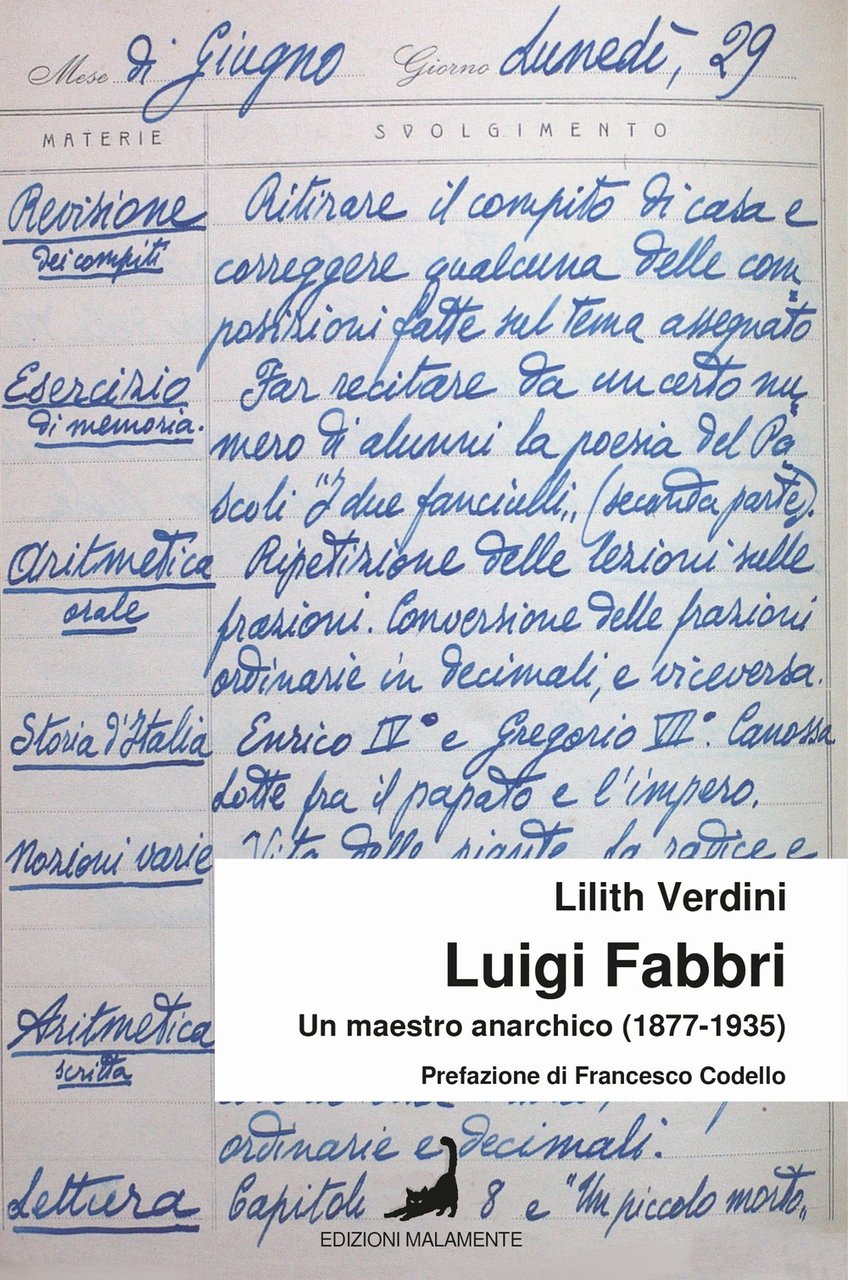 Mese di Giugno Giorno Lunedì, 29
MATERIE SVOLGIMENTO
Revisione
dei compiti
Ritirare il compito di casa e
correggere qualcuna delle com
posizioni fatte sul tema assegnato
Esercizio
di memoria.
Far recitare da un certo nu
mero di alunni la poesia del Pa
scoli "I due fanciulli„ (seconda parte).
Aritmetica
orale
Ripetizione delle lezioni sulle
frazioni. Conversione delle frazioni
ordinarie in decimali, e viceversa.
Storia d'Italia
Enrico IV° e Gregorio VII°. Canossa
Lotte fra il papato e l'impero.
Nozioni varie
Vita delle piante. La radice e
Lilith Verdini
Luigi Fabbri
Un maestro anarchico (1877-1935)
Prefazione di Francesco Codello
Aritmetica
scritta
ordinarie e decimali.
Lettura
Capitoli 8 e "Un piccolo morto„
EDIZIONI MALAMENTE